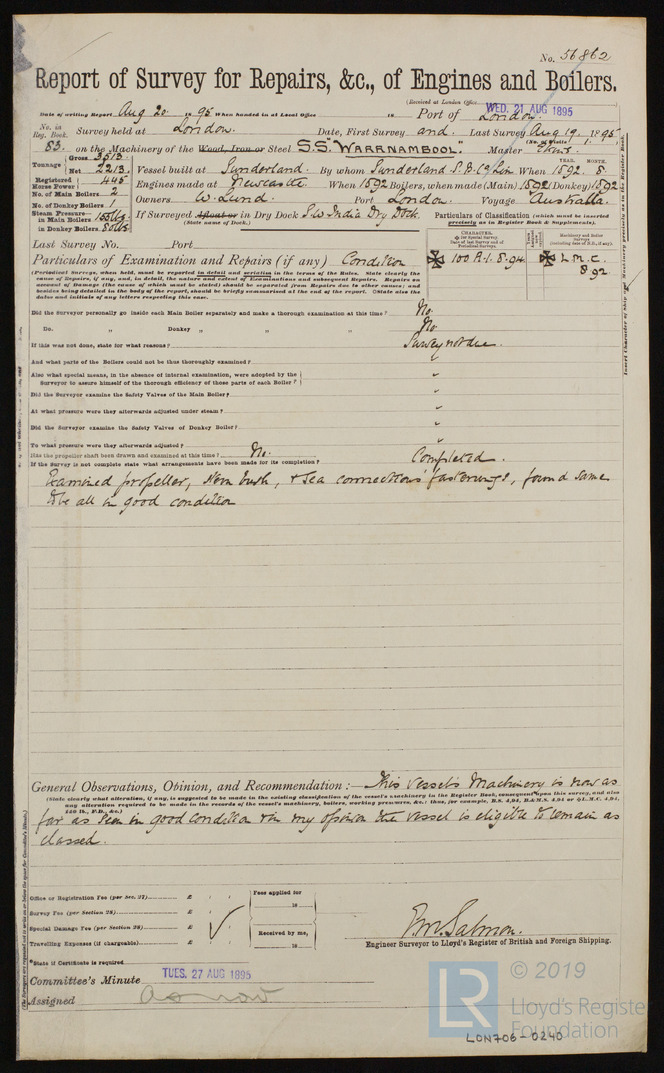 No. 56862
Report of Survey for Repairs, &c., of Engines and Boilers.
(Received at London Office WED. 21 AUG 1895
Date of writing Report Aug 20 1895 When handed in at Local Office 18 Port of London.
No. in Reg. Book. Survey held at London. Date, First Survey and Last Survey Aug 19. 1895
(No. of Visits 1.)
53. on the Machinery of the Wood, Iron or Steel S.S. "WARRNAMBOOL." Master
Tonnage Gross 3513. Net 2213. Vessel built at Sunderland. By whom Sunderland S.B. Co Lim When 1892. 8.
YEAR. MONTH.
Registered Horse Power 445 Engines made at Newcastle When 1892 Boilers, when made (Main) 1892 (Donkey) 1892
No. of Main Boilers 2
No. of Donkey Boilers 1 Owners W. Lund. Port London. Voyage Australia.
Steam Pressure in Main Boilers 155 lbs. in Donkey Boilers 80 lbs. If Surveyed Afloat or in Dry Dock S.W. India Dry Dock.
(State name of Dock.)
Particulars of Classification (which must be inserted precisely as in Register Book & Supplements).
Last Survey No. Port
CHARACTER. for Special Survey Date of last Survey and of Periodical Surveys.
Machinery and Boiler Surveys (including date of N.B., if any).
100 A.1. 8.94 L.M.C. 8 92
Particulars of Examination and Repairs (if any) Condition
(Periodical Surveys, when held, must be reported in detail and seriatim in the terms of the Rules. State clearly the
cause of Repairs, if any, and, in detail, the nature and extent of Examinations and subsequent Repairs. Repairs on
account of Damage (the cause of which must be stated) should be separated from Repairs due to other causes; and
besides being detailed in the body of the report, should be briefly summarised at the end of the report. State also the
dates and initials of any letters respecting this case.
Insert Character of Ship and Machinery precisely as in the Register Book.
Did the Surveyor personally go inside each Main Boiler separately and make a thorough examination at this time? No.
Do. „ Donkey „ „ „ No.
If this was not done, state for what reasons? Survey not due.
And what parts of the Boilers could not be thus thoroughly examined? "
Also what special means, in the absence of internal examination, were adopted by the
Surveyor to assure himself of the thorough efficiency of those parts of each Boiler? "
Did the Surveyor examine the Safety Valves of the Main Boiler? "
At what pressure were they afterwards adjusted under steam? "
Did the Surveyor examine the Safety Valves of Donkey Boiler? "
To what pressure were they afterwards adjusted? "
Has the propeller shaft been drawn and examined at this time? No.
If the Survey is not complete state what arrangements have been made for its completion? Completed.
Examined propeller, stern bush, & sea connections fastenings, found same
to be all in good condition
General Observations, Opinion, and Recommendation:— This vessel's Machinery is now as
(State clearly what alteration, if any, is suggested to be made in the existing classification of the vessel's machinery in the Register Book, consequent upon this survey, and also
any alteration required to be made in the records of the vessel's machinery, boilers, working pressures, &c.: thus, for example, B.S. 4,94, B.&M.S. 4,94 or L.M.C. 4,94,
far as seen in good condition & in my opinion the vessel is eligible to remain as
classed.
Office or Registration Fee (per Sec. 27) £
Survey Fee (per Section 28) £
Special Damage Fee (per Section 28) £
Travelling Expenses (if chargeable) £
Fees applied for
18
Received by me,
18
E.W. Salmon.
Engineer Surveyor to Lloyd's Register of British and Foreign Shipping.
*State if Certificate is required
Committee's Minute TUES. 27 AUG 1895
Assigned as now
LR © 2019
Lloyd's Registe
Foundation
LON706-0240